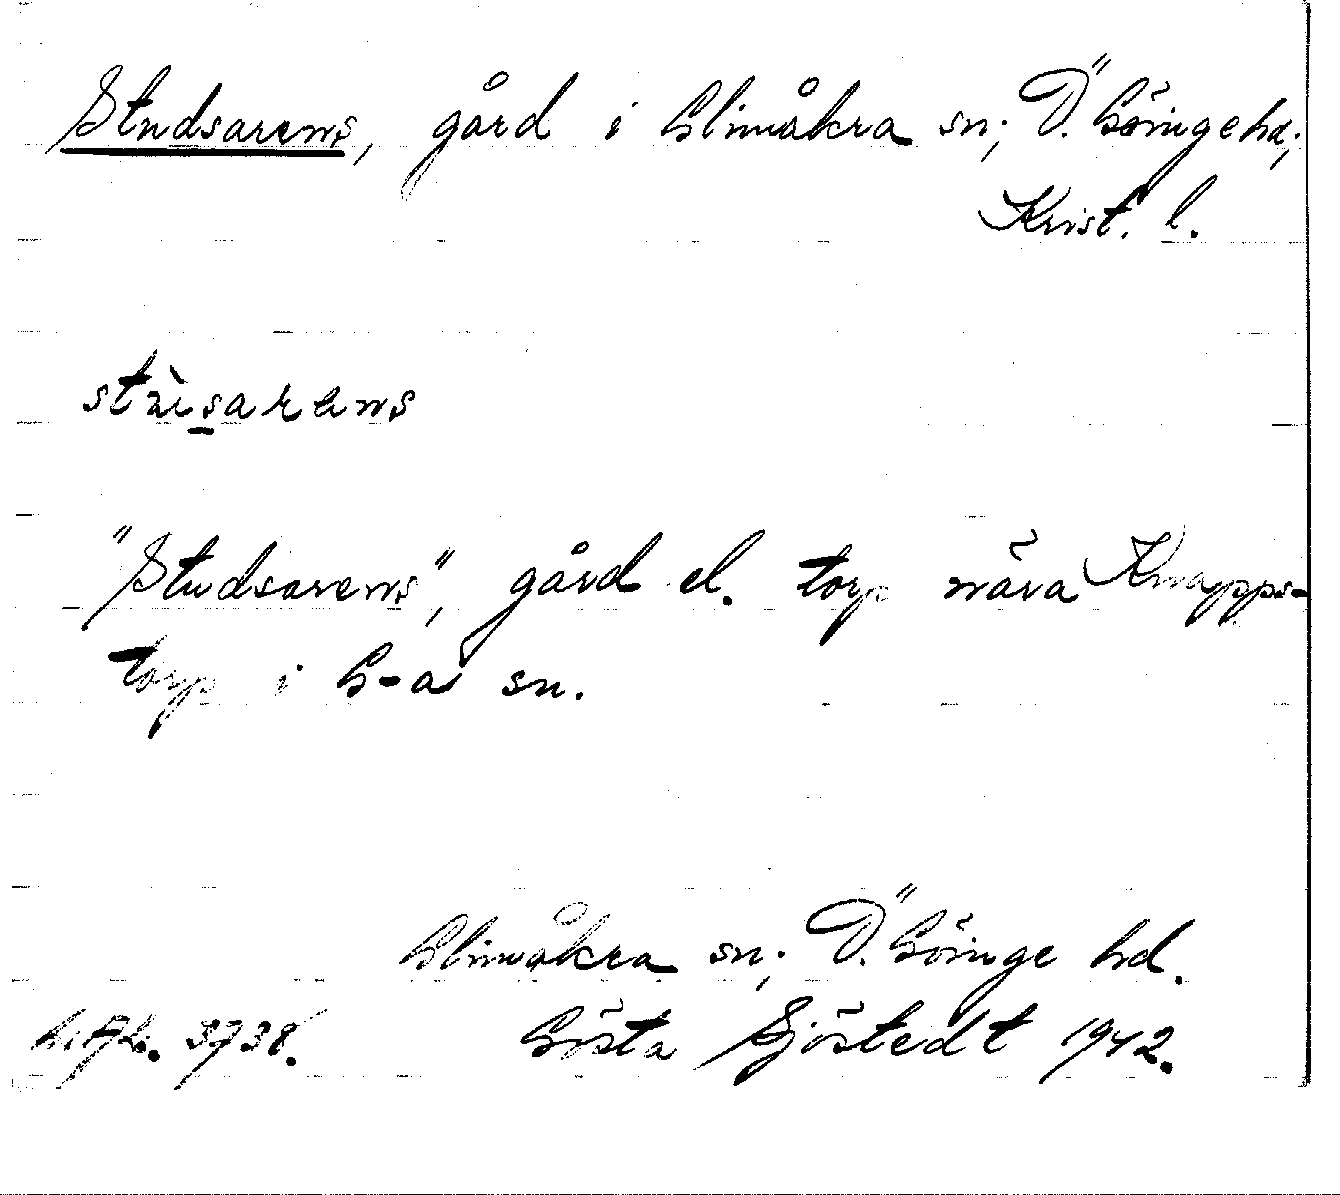 Studsarens, gård i Glimåkra sn; Ö. Göinge hd;
Krist. l.
stùsarens
"Studsarens", gård el. torp nära Knapps-
torp i G-a sn.
Glimåkra sn; Ö. Göinge hd.
3738. Gösta Sjöstedt 1942.